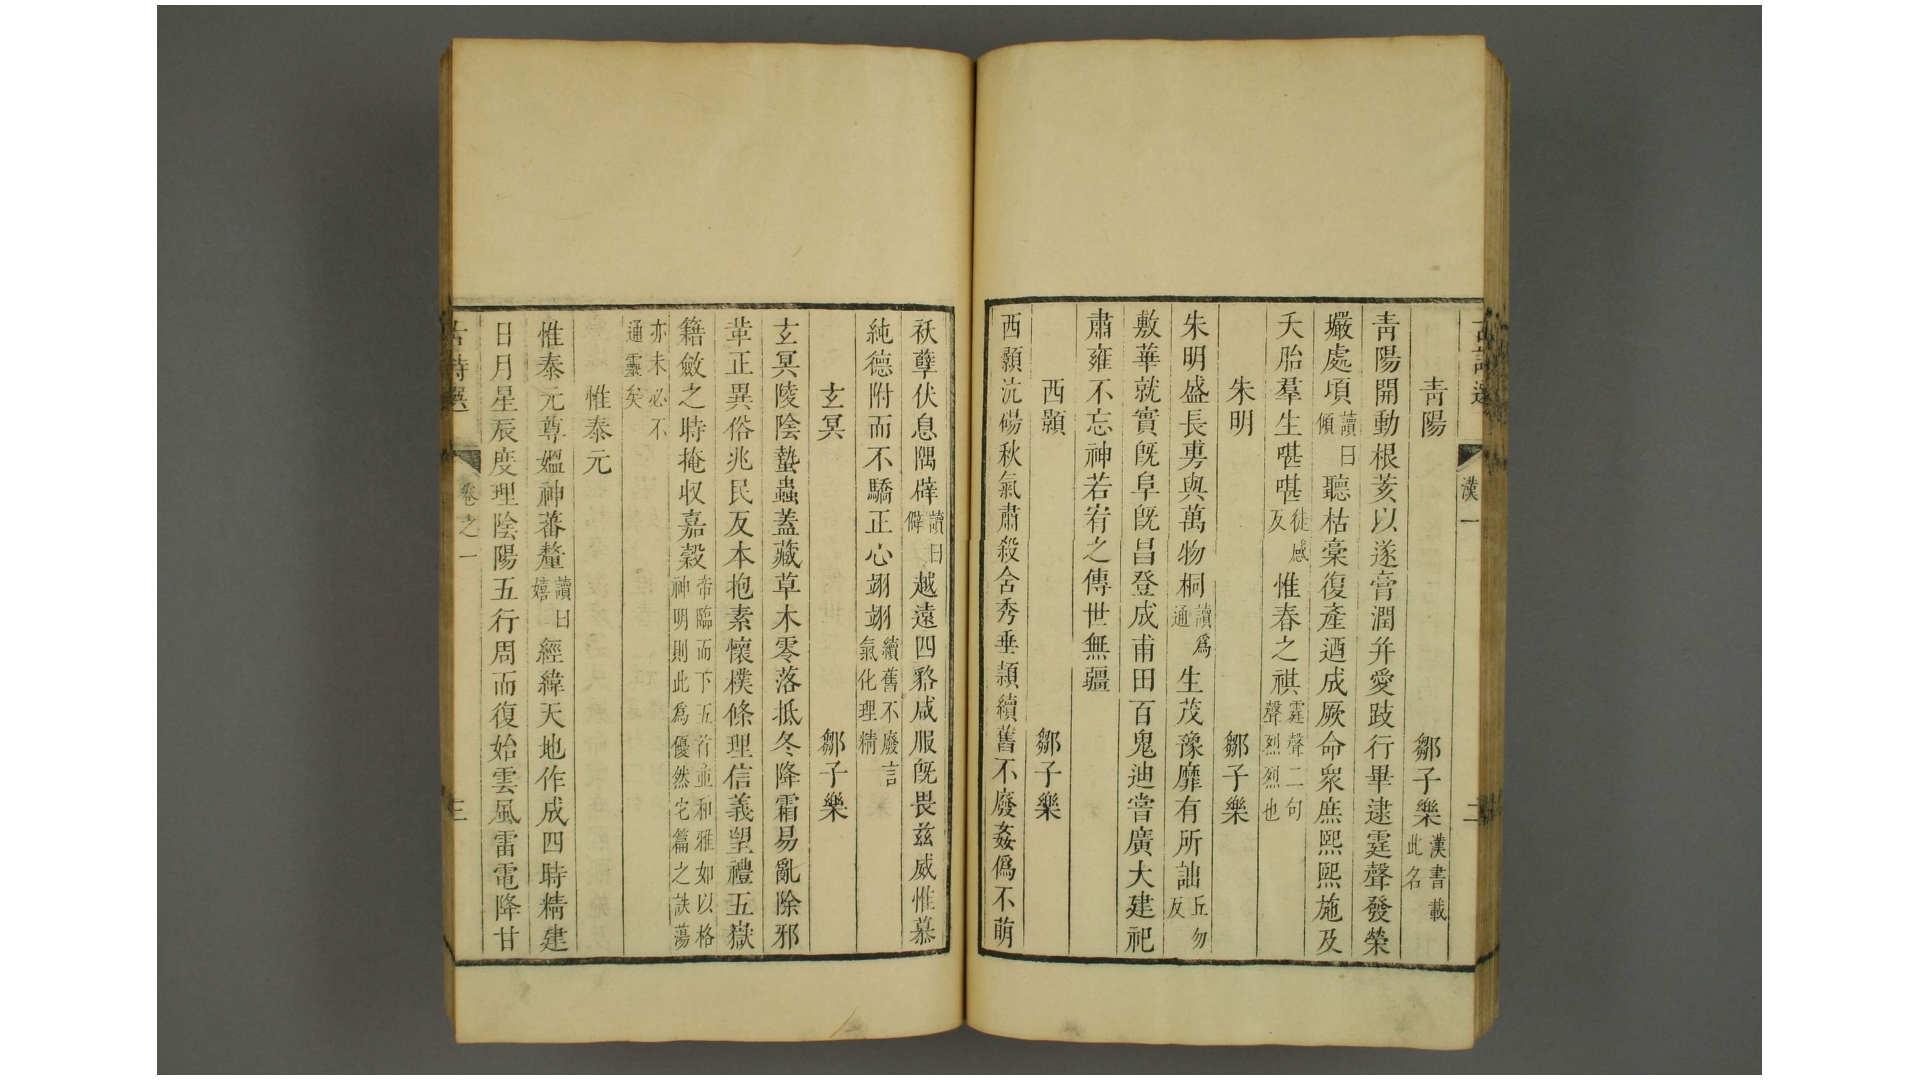 古詩選 漢一 二
青陽 鄒子樂 漢書載此名
青陽開動根荄以遂膏潤并愛跂行畢逮霆聲發榮
壧處頃讀曰傾聽枯槀復產迺成厥命衆庶熙熙施及
夭胎羣生啿啿徒感反惟春之祺霆聲二句聲烈烈也
朱明 鄒子樂
朱明盛長旉與萬物桐讀爲通生茂豫靡有所詘丘勿反
敷華就實旣阜旣昌登成甫田百鬼迪嘗廣大建祀
肅雍不忘神若宥之傳世無疆
西顥 鄒子樂
西顥沆碭秋氣肅殺含秀垂頴續舊不廢姦僞不萌
祅孽伏息隅辟讀曰僻越遠四貉咸服旣畏兹威惟慕
純德附而不驕正心翊翊續舊不廢言氣化理精
玄冥 鄒子樂
玄冥陵陰蟄蟲蓋藏草木零落抵冬降霜易亂除邪
革正異俗兆民反本抱素懷樸條理信義望禮五嶽
籍斂之時掩收嘉穀帝臨而下五首並和雅如以格神明則此爲優然它篇之詄蕩
亦未必不通靈矣
惟泰元
惟泰元尊媼神蕃釐讀曰嬉經緯天地作成四時精建
日月星辰度理陰陽五行周而復始雲風雷電降甘
古詩選 卷之一 三